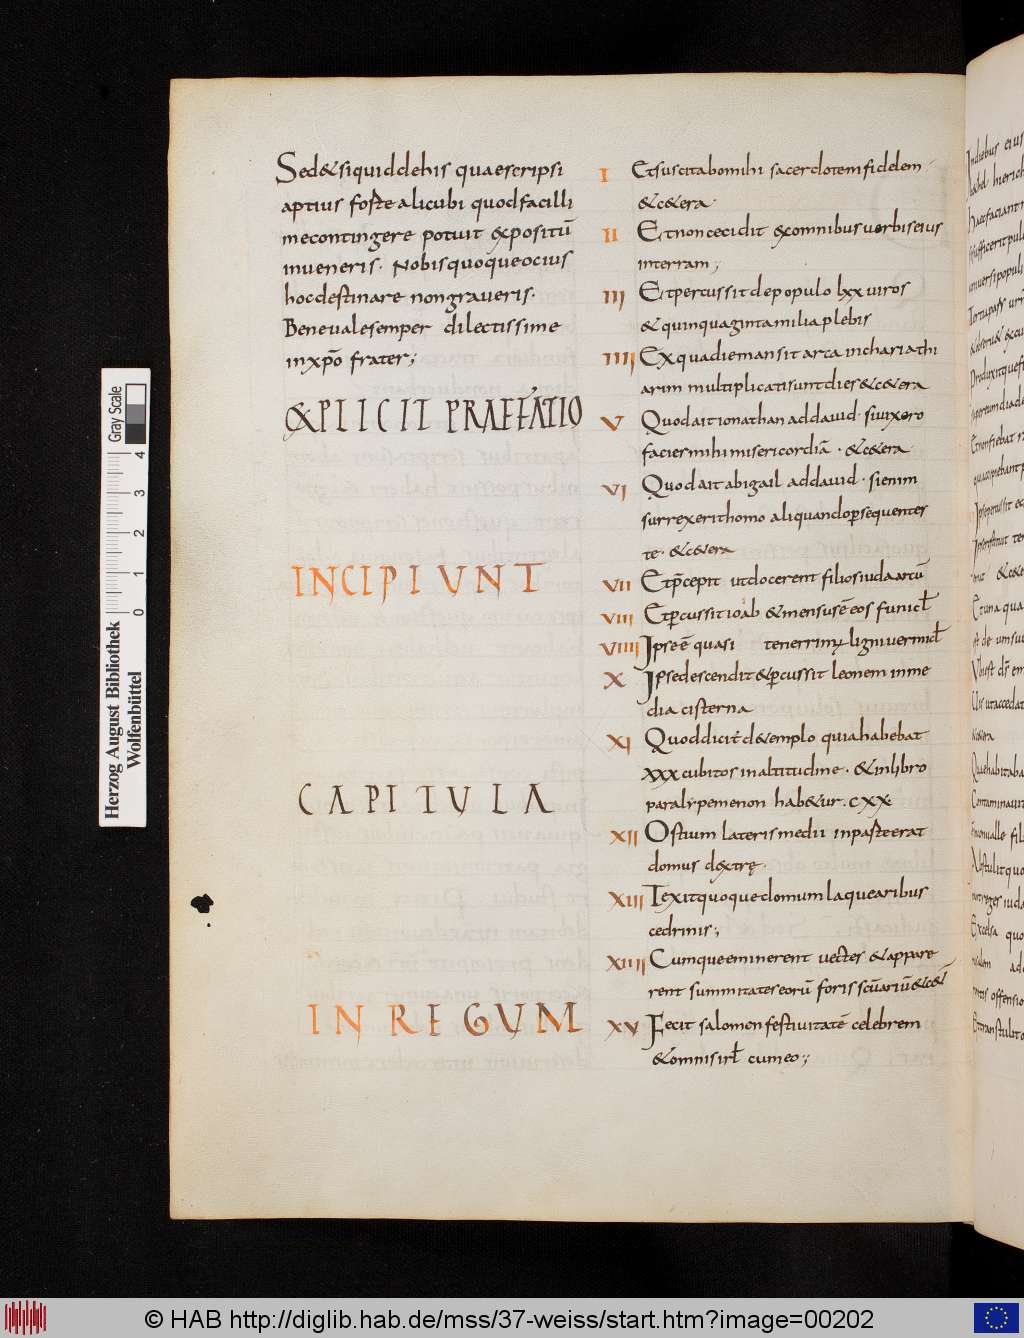 Sed & siquid dehis quae scripsi
aptius forte alicubi quod facilli
me contingere potuit expositū
inveneris. Nobis quoque ocius
hoc destinare non graveris.
Bene vale semper dilectissime
in xp̄o frater;
EXPLICIT PRAEFATIO
INCIPIUNT
CAPITULA
IN REGUM
I Et suscitabo mihi sacerdotem fidelem
& c&era.
II Et non cecidit ex omnibus verbis eius
in terram;
III Et percussit de populo lxx viros
& quinquaginta milia plebis
IIII Ex qua die mansit arca in chariathi
arim multiplicati sunt dies & c&era
V Quod ait ionathan ad david. si vixero
facies mihi misericordiā. & c&era
VI Quod ait abigail ad david. si enim
surrexerit homo aliquando p̱sequens
te. & c&era
VII Et p̄cepit ut docerent filios iuda arcū
VIII Et p̱cussit ioab & mensus ē eos funicł
VIIII Ipse ē quasi tenerrim, ligni vermicł
X Ipse descendit & p̱cussit leonem in me
dia cisterna
XI Quod dicit̄ d& emplo quia habebat
xxx cubitos in altitudine. & in libro
paralypemenon hab&ur. cxx
XII Ostium lateris medii in parte erat
domus dextrę.
XIII Texit quoque domum laquearibus
cedrinis;
XIIII Cumque eminerent vectes & appare
rent summitates eorū foris sc̄uariū & c&
XV Fecit salomon festivitatē celebrem
& omnis irł cum eo;
Herzog August Bibliothek
Wolfenbüttel
Gray Scale
0 1 2 3 4
© HAB http://diglib.hab.de/mss/37-weiss/start.htm?image=00202